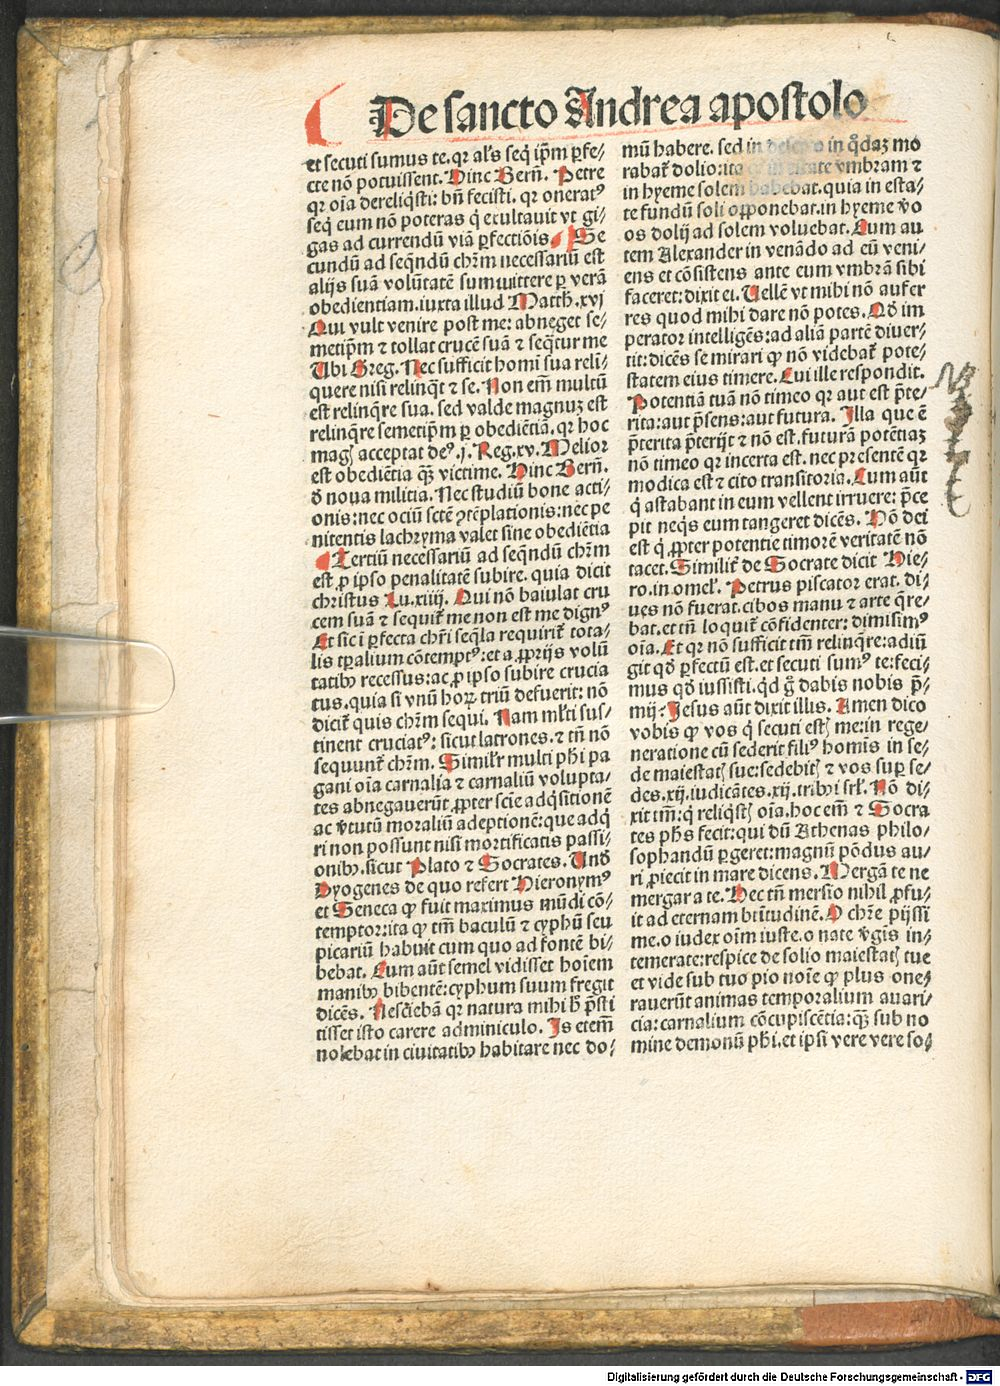 De sancto Andrea apostolo
et secuti sumus te. qr als seq̄ ip̄m ꝑfe/
cte nō potuissent. Hinc Bern̄. Petre
qr oīa dereliq̄sti: bn̄ fecisti. qr oneratꝰ
seq̄ eum nō poteras q̇ exultauit vt gi/
gas ad currendū viā ꝑfectiōis. Se
cundū ad seq̄ndū chr̄m necessariū est
alijs suā volūtatē summittere ꝑ verā
obedientiam. iuxta illud Matth̄. xvj
Qui vult venire post me: abneget se/
metip̄m ⁊ tollat crucē suā ⁊ seq̄tur me
Ubi Greg. Nec sufficit homī sua relī/
quere nisi relinq̄t ⁊ se. Non em̄ multū
est relinq̄re sua. sed valde magnuꝫ est
relinq̄re semetip̄m ꝑ obediētiā. qr hoc
magꝭ acceptat deꝰ. j. Reg. xv. Melior
est obediētia q̄ꝫ victime. Hinc Bern̄.
d̄ noua militia. Nec studiū bone acti/
onis: nec ociū sctē ꝯtēplationis: nec pe
nitentis lachryma valet sine obediētia
Tertiū necessariū ad seq̄ndū chr̄m
est ꝓ ipso penalitatē subire. quia dicit
christus Lu. xiiij. Qui nō baiulat cru
cem suā ⁊ sequit̄ me non est me dignꝰ
Et sic ī ꝑfecta chr̄i seq̄la requirit̄ tota/
lis tꝑalium cōtemptꝰ: et a ꝓprijs volū
tatibꝰ recessus: ac ꝓ ipso subire crucia
tus. quia si vnū hoꝝ triū defuerit: nō
dicit̄ quis chr̄m sequi. Nam ml̄ti sus/
tinent cruciatꝰ: sicut latrones. ⁊ tn̄ nō
sequunt̄ chr̄m. Simil̄r multi ph̄i pa
gani oīa carnalia ⁊ carnaliū volupta/
tes abnegauerūt ꝓpter sciē adq̄sitionē
ac v̄tutū moraliū adeptionē: que adq̇
ri non possunt nisi mortificatis passi/
onibꝰ. sicut Plato ⁊ Socrates. Und̄
Dyogenes de quo refert Hieronymꝰ
et Seneca ꝙ fuit maximus mūdi cō/
temptor: ita ꝙ tm̄ baculū ⁊ cyphū seu
picariū habuit cum quo ad fontē bi/
bebat. Cum aūt semel vidisset hoīem
manibꝰ bibentē: cyphum suum fregit
dicēs. Nesciebā qr natura mihi h̄ p̄sti
tisset isto carere adminiculo. Is etem̄
nolebat in ciuitatibꝰ habitare nec do/
mū habere. sed in in q̇daꝫ mo
rabat̄ dolio: ita vmbram ⁊
in hyeme solem habebat. quia in esta/
te fundū soli opponebat. in hyeme v̄o
os dolij ad solem voluebat. Cum au
tem Alexander in venādo ad eū veni/
ens et cōsistens ante eum vmbrā sibi
faceret: dixit ei. Uellē vt mihi nō aufer
res quod mihi dare nō potes. Qd̄ im
perator intelligēs: ad aliā partē diuer/
tit: dicēs se mirari ꝙ nō videbat̄ pote/
statem eius timere. Cui ille respondit.
Potentiā tuā nō timeo qr aut est p̄te/
rita: aut p̄sens: aut futura. Illa que ē
p̄terita p̄terijt ⁊ nō est. futurā potētiaꝫ
nō timeo qr incerta est. nec presentē qr
modica est ⁊ cito transitoria. Cum aūt
q̇ astabant in eum vellent irruere: p̄ce
pit neq̄s eum tangeret dicēs. Nō dei
est q̇ ꝓpter potentie timorē veritatē nō
tacet. Similit̄ de Socrate dicit Hie/
ro. in omel̄. Petrus piscator erat. di/
ues nō fuerat. cibos manu ⁊ arte q̄re/
bat. et tn̄ loquit̄ cōfidenter: dimisimꝰ
oīa. Et qr nō sufficit tm̄ relinq̄re: adiū
git qd̄ ꝑfectū est. et secuti sumꝰ te: feci/
mus qd̄ iussisti. qd̄ gͦ dabis nobis p̄/
mij? Jesus aūt dixit illis. Amen dico
vobis ꝙ vos q̇ secuti estꝭ me: in rege/
neratione cū sederit filiꝰ homīs in se/
de maiestatꝭ sue: sedebitꝭ ⁊ vos suꝑ se/
des. xij. iudicātes. xij. tribꝰ isrl̄. Nō di/
xit tm̄: q̇ reliq̄stꝭ oīa. hoc em̄ ⁊ Socra
tes ph̄s fecit: qui dū Athenas philo/
sophandū ꝑgeret: magnū pōdus au/
ri ꝓiecit in mare dicens. Mergā te ne
mergar a te. Hec tn̄ mersio nihil ꝓfu/
it ad eternam btītudinē. O chr̄e pijssi
me. o iudex oīm iuste. o nate v̄gīs in/
temerate: respice de solio maiestatꝭ tue
et vide sub tuo pio noīe ꝙ plus one/
rauerūt animas temporalium auari/
cia: carnalium cōcupiscētia: q̄ꝫ sub no
mine demonū ph̄i. et ipsi vere vere so/
Digitalisierung gefördert durch die Deutsche Forschungsgemeinschaft - DFG